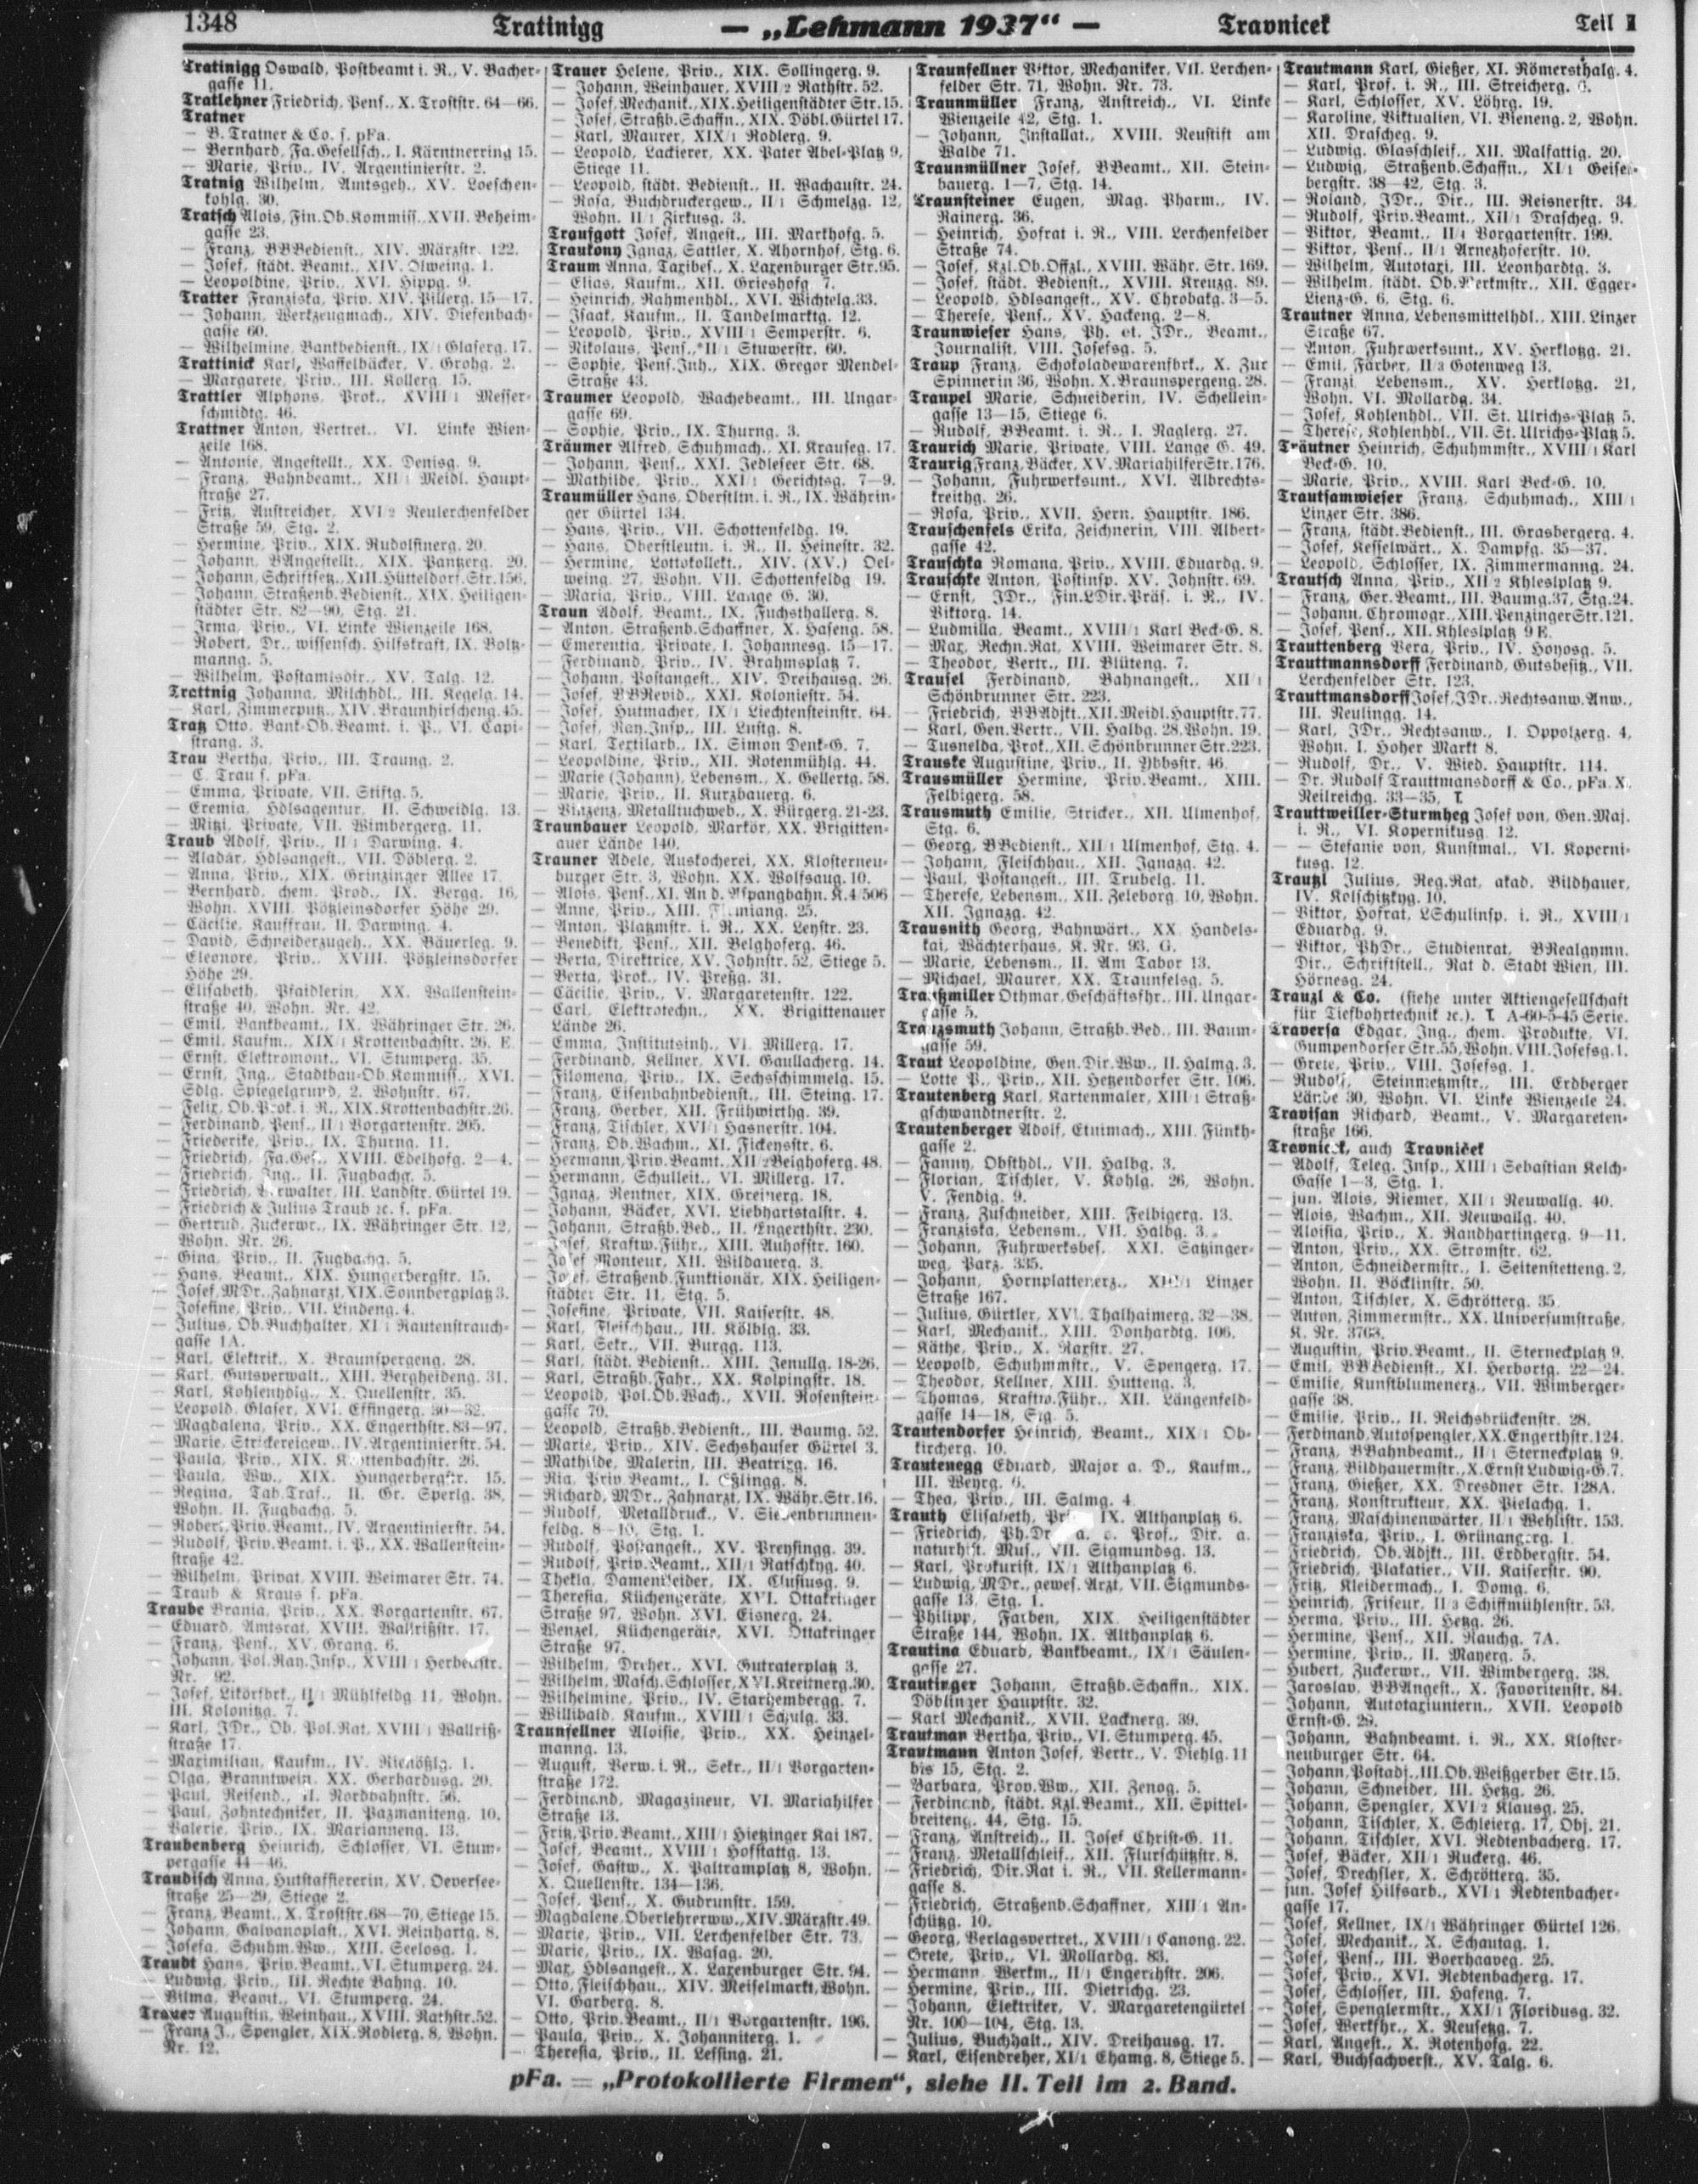 1348
Tratinigg
— „Lehmann 1937“ —
Travnicek
Teil I
Tratinigg Oswald, Postbeamt i. R., V. Bacher-
gasse 11.
Tratlehner Friedrich, Pens., X. Troststr. 64—66.
Tratner
— B. Tratner & Co. s. pFa.
— Bernhard, Fa.Gesellsch., I. Kärntnerring 15.
— Marie, Priv., IV. Argentinierstr. 2.
Tratnig Wilhelm, Amtsgeh., XV. Loeschen-
kohlg. 30.
Tratsch Alois, Fin.Ob.Kommiss., XVII. Beheim-
gasse 23.
— Franz, BBBedienst., XIV. Märzstr. 122.
— Josef, städt. Beamt., XIV. Olweing. 1.
— Leopoldine, Priv., XVI. Hippg. 9.
Tratter Franziska, Priv. XIV. Pillerg. 15—17.
— Johann, Werkzeugmach., XIV. Diefenbach-
gasse 60.
— Wilhelmine, Bankbedienst., IX/1 Glaserg. 17.
Trattinick Karl, Waffelbäcker, V. Grohg. 2.
— Margarete, Priv., III. Kollerg. 15.
Trattler Alphons, Prok., XVIII/1 Messer-
schmidtg. 46.
Trattner Anton, Vertret., VI. Linke Wien-
zeile 168.
— Antonie, Angestellt., XX. Denisg. 9.
— Franz, Bahnbeamt., XII/1 Meidl. Haupt-
straße 27.
— Fritz, Anstreicher, XVI/2 Neulerchenfelder
Straße 59, Stg. 2.
— Hermine, Priv., XIX. Rudolfinerg. 20.
— Johann, BAngestellt., XIX. Pantzerg. 20.
— Johann, Schriftsetz., XIII. Hütteldorf.Str. 156.
— Johann, Straßenb.Bedienst., XIX. Heiligen-
städter Str. 82—90, Stg. 21.
— Irma, Priv., VI. Linke Wienzeile 168.
— Robert, Dr., wissensch. Hilfskraft, IX. Boltz-
manng. 5.
— Wilhelm, Postamtsdir., XV. Talg. 12.
Trattnig Johanna, Milchhdl., III. Kegelg. 14.
— Karl, Zimmerputz., XIV. Braunhirscheng. 45.
Tratz Otto, Bank-Ob.Beamt. i. P., VI. Capi-
strang. 3.
Trau Bertha, Priv., III. Traung. 2.
— C. Trau s. pFa.
— Emma, Private, VII. Stiftg. 5.
— Eremia, Hdlsagentur, II. Schweidlg. 13.
— Mitzi, Private, VII. Wimbergerg. 11.
Traub Adolf, Priv., II/1 Darwing. 4.
— Aladar, Hdlsangest., VII. Döblerg. 2.
— Anna, Priv., XIX. Grinzinger Allee 17.
— Bernhard, chem. Prod., IX. Bergg. 16,
Wohn. XVIII. Pötzleinsdorfer Höhe 29.
— Cäcilie, Kauffrau, II. Darwing. 4.
— David, Schneiderzugeh., XX. Bäuerleg. 9.
— Eleonore, Priv., XVIII. Pötzleinsdorfer
Höhe 29.
— Elisabeth, Pfaidlerin, XX. Wallenstein-
straße 40, Wohn. Nr. 42.
— Emil, Bankbeamt., IX. Währinger Str. 26.
— Emil, Kaufm., XIX/1 Krottenbachstr. 26. E.
— Ernst, Elektromont., VI. Stumperg. 35.
— Ernst, Ing., Stadtbau-Ob.Kommiss., XVI.
Sdlg. Spiegelgrund, 2. Wohnstr. 67.
— Felix, Ob.Prok. i. R., XIX. Krottenbachstr. 26.
— Ferdinand, Pens., II/1 Vorgartenstr. 205.
— Friederike, Priv., IX. Thurng. 11.
— Friedrich, Fa.Ges., XVIII. Edelhofg. 2—4.
— Friedrich, Ing., II. Fugbachg. 5.
— Friedrich, Verwalter, III. Landstr. Gürtel 19.
— Friedrich & Julius Traub ꝛc. s. pFa.
— Gertrud, Zuckerwr., IX. Währinger Str. 12,
Wohn. Nr. 26.
— Gina, Priv., II. Fugbachg. 5.
— Hans, Beamt., XIX. Hungerbergstr. 15.
— Josef, MDr., Zahnarzt, XIX. Sonnbergplatz 3.
— Josefine, Priv., VII. Lindeng. 4.
— Julius, Ob.Buchhalter, XI/1 Rautenstrauch-
gasse 1A.
— Karl, Elektrik., X. Braunspergeng. 28.
— Karl, Gutsverwalt., XIII. Bergheideng. 31.
— Karl, Kohlenhdlg., X. Quellenstr. 35.
— Leopold, Glaser, XVI. Effingerg. 30—32.
— Magdalena, Priv., XX. Engerthstr. 83—97.
— Marie, Strickereigew., IV. Argentinierstr. 54.
— Paula, Priv., XIX. Krottenbachstr. 26.
— Paula, Ww., XIX. Hungerbergstr. 15.
— Regina, Tab.Traf., II. Gr. Sperlg. 38,
Wohn. II. Fugbachg. 5.
— Robert, Priv.Beamt., IV. Argentinierstr. 54.
— Rudolf, Priv.Beamt. i. P., XX. Wallenstein-
straße 42.
— Wilhelm, Privat, XVIII. Weimarer Str. 74.
— Traub & Kraus s. pFa.
Traube Brania, Priv., XX. Vorgartenstr. 67.
— Eduard, Amtsrat, XVIII. Wallrißstr. 17.
— Franz, Pens., XV. Grang. 6.
— Johann, Pol.Ray.Insp., XVIII/1 Herbeckstr.
Nr. 92.
— Josef, Likörfbrk., II/1 Mühlfeldg. 11, Wohn.
III. Kolonitzg. 7.
— Karl, JDr., Ob. Pol.Rat, XVIII/1 Wallriß-
straße 17.
— Maximilian, Kaufm., IV. Rienößlg. 1.
— Olga, Branntwein, XX. Gerhardusg. 20.
— Paul, Reisend., II. Nordbahnstr. 56.
— Paul, Zahntechniker, II. Pazmaniteng. 10.
— Valerie, Priv., IX. Marianneng. 13.
Traubenberg Heinrich, Schlosser, VI. Stum-
pergasse 44—46.
Traudisch Anna, Hutstaffiererin, XV. Oeversee-
straße 25—29, Stiege 2.
— Franz, Beamt., X. Troststr. 68—70, Stiege 15.
— Johann, Galvanoplast., XVI. Reinhartg. 8.
— Josefa, Schuhm.Ww., XIII. Seelosg. 1.
Traudt Hans, Priv.Beamt., VI. Stumperg. 24.
— Ludwig, Priv., III. Rechte Bahng. 10.
— Vilma, Beamt., VI. Stumperg. 24.
Trauer Augustin, Weinhau., XVIII. Rathstr. 52.
— Franz J., Spengler, XIX. Rodlerg. 8, Wohn.
Nr. 12.
Trauer Helene, Priv., XIX. Sollingerg. 9.
— Johann, Weinhauer, XVIII/2 Rathstr. 52.
— Josef, Mechanik., XIX. Heiligenstädter Str. 15.
— Josef, Straßb.Schaffn., XIX. Döbl.Gürtel 17.
— Karl, Maurer, XIX/1 Rodlerg. 9.
— Leopold, Lackierer, XX. Pater Abel-Platz 9,
Stiege 11.
— Leopold, städt. Bedienst., II. Wachaustr. 24.
— Rosa, Buchdruckergew., II/1 Schmelzg. 12,
Wohn. II/1 Zirkusg. 3.
Traufgott Josef, Angest., III. Markhofg. 5.
Traukony Ignaz, Sattler, X. Ahornhof, Stg. 6.
Traum Anna, Taxibes., X. Laxenburger Str. 95.
— Elias, Kaufm., XII. Grieshofg. 7.
— Heinrich, Rahmenhdl., XVI. Wichtelg. 33.
— Isaak, Kaufm., II. Tandelmarktg. 12.
— Leopold, Priv., XVIII/1 Semperstr. 6.
— Nikolaus, Pens., II/1 Stuwerstr. 60.
— Sophie, Pens.Inh., XIX. Gregor Mendel-
Straße 43.
Traumer Leopold, Wachebeamt., III. Ungar-
gasse 69.
— Sophie, Priv., IX. Thurng. 3.
Träumer Alfred, Schuhmach., XI. Krauseg. 17.
— Johann, Pens., XXI. Jedleseer Str. 68.
— Mathilde, Priv., XXI/1 Gerichtsg. 7—9.
Traumüller Hans, Oberstltn. i. R., IX. Währin-
ger Gürtel 134.
— Hans, Priv., VII. Schottenfeldg. 19.
— Hans, Oberstleutn. i. R., II. Heinestr. 32.
— Hermine, Lottokollekt., XIV. (XV.) Oel-
weing. 27, Wohn. VII. Schottenfeldg. 19.
— Maria, Priv., VIII. Lange G. 30.
Traun Adolf, Beamt., IX. Fuchsthallerg. 8.
— Anton, Straßenb.Schaffner, X. Haseng. 58.
— Emerentia, Private, I. Johannesg. 15—17.
— Ferdinand, Priv., IV. Brahmsplatz 7.
— Johann, Postangest., XIV. Dreihausg. 26.
— Josef, BBRevid., XXI. Koloniestr. 54.
— Josef, Hutmacher, IX/1 Liechtensteinstr. 64.
— Josef, Ray.Insp., III. Lustg. 8.
— Karl, Textilarb., IX. Simon Denk-G. 7.
— Leopoldine, Priv., XII. Rotenmühlg. 44.
— Marie (Johann), Lebensm., X. Gellertg. 58.
— Marie, Priv., II. Kurzbauerg. 6.
— Vinzenz, Metalltuchweb., X. Bürgerg. 21-23.
Traunbauer Leopold, Markör, XX. Brigitten-
auer Lände 140.
Trauner Adele, Auskocherei, XX. Klosterneu-
burger Str. 3, Wohn. XX. Wolfsaug. 10.
— Alois, Pens., XI. An d. Aspangbahn, K. 4/506
— Anne, Priv., XIII. Flemiang. 25.
— Anton, Platzmstr. i. R., XX. Leystr. 23.
— Benedikt, Pens., XII. Belghoferg. 46.
— Berta, Direktrice, XV. Johnstr. 52, Stiege 5.
— Berta, Prok., IV. Preßg. 31.
— Cäcilie, Priv., V. Margaretenstr. 122.
— Carl, Elektrotechn., XX. Brigittenauer
Lände 26.
— Emma, Institutsinh., VI. Millerg. 17.
— Ferdinand, Kellner, XVI. Gaullacherg. 14.
— Filomena, Priv., IX. Sechsschimmelg. 15.
— Franz, Eisenbahnbedienst., III. Steing. 17.
— Franz, Gerber, XII. Frühwirthg. 39.
— Franz, Tischler, XVI/1 Hasnerstr. 104.
— Franz, Ob.Wachm., XI. Fickeysstr. 6.
— Hermann, Priv.Beamt., XII/2 Belghoferg. 48.
— Hermann, Schulleit., VI. Millerg. 17.
— Ignaz, Rentner, XIX. Greinerg. 18.
— Johann, Bäcker, XVI. Liebhartstalstr. 4.
— Johann, Straßb.Bed., II. Engerthstr. 230.
— Josef, Kraftw.Führ., XIII. Auhofstr. 160.
— Josef Monteur, XII. Wildauerg. 3.
— Josef, Straßenb.Funktionär, XIX. Heiligen-
städter Str. 11, Stg. 5.
— Josefine, Private, VII. Kaiserstr. 48.
— Karl, Fleischhau., III. Kölblg. 33.
— Karl, Sekr., VII. Burgg. 113.
— Karl, städt. Bedienst., XIII. Jenullg. 18-26.
— Karl, Straßb.Fahr., XX. Kolpingstr. 18.
— Leopold, Pol.Ob.Wach., XVII. Rosenstein-
gasse 70.
— Leopold, Straßb.Bedienst., III. Baumg. 52.
— Marie, Priv., XIV. Sechshauser Gürtel 3.
— Mathilde, Malerin, III. Beatrixg. 16.
— Ria, Priv.Beamt., I. Eßlingg. 8.
— Richard, MDr., Zahnarzt, IX. Währ.Str. 16.
— Rudolf, Metalldruck., V. Siebenbrunnen-
feldg. 8—10, Stg. 1.
— Rudolf, Postangest., XV. Preysingg. 39.
— Rudolf, Priv.Beamt., XII/1 Ratschkyg. 40.
— Thekla, Damenkleider, IX. Clusiusg. 9.
— Theresia, Küchengeräte, XVI. Ottakringer
Straße 97, Wohn. XVI. Eisnerg. 24.
— Wenzel, Küchengeräte, XVI. Ottakringer
Straße 97.
— Wilhelm, Dreher, XVI. Gutraterplatz 3.
— Wilhelm, Masch.Schlosser, XVI. Kreitnerg. 30.
— Wilhelmine, Priv., IV. Starhembergg. 7.
— Willibald, Kaufm., XVIII/1 Schulg. 33.
Traunfellner Aloisie, Priv., XX. Heinzel-
manng. 13.
— August, Verw. i. R., Sekr., II/1 Vorgarten-
straße 172.
— Ferdinand, Magazineur, VI. Mariahilfer
Straße 13.
— Fritz, Priv.Beamt., XIII/1 Hietzinger Kai 187.
— Josef, Beamt., XVIII/1 Hofstattg. 13.
— Josef, Gastw., X. Paltramplatz 8, Wohn.
X. Quellenstr. 134—136.
— Josef, Pens., X. Gudrunstr. 159.
— Magdalene, Oberlehrerww., XIV. Märzstr. 49.
— Marie, Priv., VII. Lerchenfelder Str. 73.
— Marie, Priv., IX. Wasag. 20.
— Max, Hdlsangest., X. Laxenburger Str. 94.
— Otto, Fleischhau., XIV. Meiselmarkt, Wohn.
VI. Garberg. 8.
— Otto, Priv.Beamt., II/1 Vorgartenstr. 196.
— Paula, Priv., X. Johanniterg. 1.
— Theresia, Priv., II. Lessing. 21.
Traunfellner Viktor, Mechaniker, VII. Lerchen-
felder Str. 71, Wohn. Nr. 73.
Traunmüller Franz, Anstreich., VI. Linke
Wienzeile 42, Stg. 1.
— Johann, Installat., XVIII. Neustift am
Walde 71.
Traunmüllner Josef, BBeamt., XII. Stein-
bauerg. 1—7, Stg. 14.
Traunsteiner Eugen, Mag. Pharm., IV.
Rainerg. 36.
— Heinrich, Hofrat i. R., VIII. Lerchenfelder
Straße 74.
— Josef, Kzl.Ob.Offzl., XVIII. Währ. Str. 169.
— Josef, städt. Bedienst., XVIII. Kreuzg. 89.
— Leopold, Hdlsangest., XV. Chrobakg. 3—5.
— Therese, Pens., XV. Hackeng. 2—8.
Traunwieser Hans, Ph. et. JDr., Beamt.,
Journalist, VIII. Josefsg. 5.
Traup Franz, Schokoladewarenfbrk., X. Zur
Spinnerin 36, Wohn. X. Braunspergeng. 28.
Traupel Marie, Schneiderin, IV. Schellein-
gasse 13—15, Stiege 6.
— Rudolf, BBeamt. i. R., I. Naglerg. 27.
Traurich Marie, Private, VIII. Lange G. 49.
Traurig Franz, Bäcker, XV. Mariahilfer Str. 176.
— Johann, Fuhrwerksunt., XVI. Albrechts-
kreithg. 26.
— Rosa, Priv., XVII. Hern. Hauptstr. 186.
Trauschenfels Erika, Zeichnerin, VIII. Albert-
gasse 42.
Trauschka Romana, Priv., XVIII. Eduardg. 9.
Trauschke Anton, Postinsp. XV. Johnstr. 69.
— Ernst, JDr., Fin.LDir.Präs. i. R., IV.
Viktorg. 14.
— Ludmilla, Beamt., XVIII/1 Karl Beck-G. 8.
— Max, Rechn.Rat, XVIII. Weimarer Str. 8.
— Theodor, Vertr., III. Blüteng. 7.
Trausel Ferdinand, Bahnangest., XII/1
Schönbrunner Str. 223.
— Friedrich, BBAdjkt., XII. Meidl.Hauptstr. 77.
— Karl, Gen.Vertr., VII. Halbg. 28, Wohn. 19.
— Tusnelda, Prok., XII. Schönbrunner Str. 223.
Trauske Augustine, Priv., II. Ybbsstr. 46.
Trausmüller Hermine, Priv.Beamt., XIII.
Felbigerg. 58.
Trausmuth Emilie, Stricker., XII. Ulmenhof,
Stg. 6.
— Georg, BBedienst., XII/1 Ulmenhof, Stg. 4.
— Johann, Fleischhau., XII. Ignazg. 42.
— Paul, Postangest., III. Trubelg. 11.
— Therese, Lebensm., XII. Zeleborg. 10, Wohn.
XII. Ignazg. 42.
Trausnith Georg, Bahnwärt., XX. Handels-
kai, Wächterhaus, K. Nr. 93, G.
— Marie, Lebensm., II. Am Tabor 13.
— Michael, Maurer, XX. Traunfelsg. 5.
Traußmiller Othmar, Geschäftsfhr., III. Ungar-
gasse 5.
Trauzsmuth Johann, Straßb.Bed., III. Baum-
gasse 59.
Traut Leopoldine, Gen.Dir.Ww., II. Halmg. 3.
— Lotte P., Priv., XII. Hetzendorfer Str. 106.
Trautenberg Karl, Kartenmaler, XIII/1 Straß-
gschwandtnerstr. 2.
Trautenberger Adolf, Etuimach., XIII. Fünkh-
gasse 2.
— Fanny, Obsthdl., VII. Halbg. 3.
— Florian, Tischler, V. Kohlg. 26, Wohn.
V. Fendig. 9.
— Franz, Zuschneider, XIII. Felbigerg. 13.
— Franziska, Lebensm., VII. Halbg. 3.
— Johann, Fuhrwerksbes. XXI. Satzinger-
weg, Parz. 335.
— Johann, Hornplattenerz., XIII/1 Linzer
Straße 167.
— Julius, Gürtler, XVI. Thalhaimerg. 32—38.
— Karl, Mechanik., XIII. Donhardtg. 106.
— Käthe, Priv., X. Raxstr. 27.
— Leopold, Schuhmmstr., V. Spengerg. 17.
— Theodor, Kellner, XIII. Hutteng. 3.
— Thomas, Kraftw.Führ., XII. Längenfeld-
gasse 14—18, Stg. 5.
Trautendorfer Heinrich, Beamt., XIX/1 Ob-
kircherg. 10.
Trautenegg Eduard, Major a. D., Kaufm.,
III. Weyrg. 6.
— Thea, Priv., III. Salmg. 4.
Trauth Elisabeth, Priv., IX. Althanplatz 6.
— Friedrich, Ph.Dr., a. o. Prof., Dir. a.
naturhist. Mus., VII. Sigmundsg. 13.
— Karl, Prokurist, IX/1 Althanplatz 6.
— Ludwig, MDr., gewes. Arzt, VII. Sigmunds-
gasse 13, Stg. 1.
— Philipp, Farben, XIX. Heiligenstädter
Straße 144, Wohn. IX. Althanplatz 6.
Trautina Eduard, Bankbeamt., IX/1 Säulen-
gasse 27.
Trautinger Johann, Straßb.Schaffn., XIX.
Döblinger Hauptstr. 32.
— Karl Mechanik., XVII. Lacknerg. 39.
Trautman Bertha, Priv., VI. Stumperg. 45.
Trautmann Anton Josef, Vertr., V. Diehlg. 11
bis 15, Stg. 2.
— Barbara, Prov.Ww., XII. Zenog. 5.
— Ferdinand, städt. Kzl.Beamt., XII. Spittel-
breiteng. 44, Stg. 15.
— Franz, Anstreich., II. Josef Christ-G. 11.
— Franz, Metallschleif., XII. Flurschützstr. 8.
— Friedrich, Dir.Rat i. R., VII. Kellermann-
gasse 8.
— Friedrich, Straßenb.Schaffner, XIII/1 An-
schützg. 10.
— Georg, Verlagsvertret., XVIII/1 Canong. 22.
— Grete, Priv., VI. Mollardg. 83.
— Hermann, Werkm., II/1 Engerthstr. 206.
— Hermine, Priv., III. Dietrichg. 23.
— Johann, Elektriker, V. Margaretengürtel
Nr. 100—104, Stg. 13.
— Julius, Buchhalt., XIV. Dreihausg. 17.
— Karl, Eisendreher, XI/1 Ehamg. 8, Stiege 5.
Trautmann Karl, Gießer, XI. Römersthalg. 4.
— Karl, Prof. i. R., III. Streicherg. 6.
— Karl, Schlosser, XV. Löhrg. 19.
— Karoline, Viktualien, VI. Bieneng. 2, Wohn.
XII. Drascheg. 9.
— Ludwig, Glasschleif., XII. Malfattig. 20.
— Ludwig, Straßenb.Schaffn., XI/1 Geisel-
bergstr. 38—42, Stg. 3.
— Roland, JDr., Dir., III. Reisnerstr. 34.
— Rudolf, Priv.Beamt., XII/1 Drascheg. 9.
— Viktor, Beamt., II/1 Vorgartenstr. 199.
— Viktor, Pens., II/1 Arnezhoferstr. 10.
— Wilhelm, Autotaxi, III. Leonhardtg. 3.
— Wilhelm, städt. Ob.Werkmstr., XII. Egger-
Lienz-G. 6, Stg. 6.
Trautner Anna, Lebensmittelhdl., XIII. Linzer
Straße 67.
— Anton, Fuhrwerksunt., XV. Herklotzg. 21.
— Emil, Färber, II/3 Gotenweg 13.
— Franzi, Lebensm., XV. Herklotzg. 21,
Wohn. VI. Mollardg. 34.
— Josef, Kohlenhdl., VII. St. Ulrichs-Platz 5.
— Therese, Kohlenhdl., VII. St. Ulrichs-Platz 5.
Träutner Heinrich, Schuhmmstr., XVIII/1 Karl
Beck-G. 10.
— Marie, Priv., XVIII. Karl Beck-G. 10.
Trautsamwieser Franz, Schuhmach., XIII/1
Linzer Str. 386.
— Franz, städt.Bedienst., III. Grasbergerg. 4.
— Josef, Kesselwärt., X. Dampfg. 35—37.
— Leopold, Schlosser, IX. Zimmermanng. 24.
Trautsch Anna, Priv., XII/2 Khleslplatz 9.
— Franz, Ger.Beamt., III. Baumg. 37, Stg. 24.
— Johann, Chromogr., XIII. Penzinger Str. 121.
— Josef, Pens., XII. Khleslplatz 9 E.
Trauttenberg Vera, Priv., IV. Hoyosg. 5.
Trauttmannsdorff Ferdinand, Gutsbesitz., VII.
Lerchenfelder Str. 123.
Trauttmansdorff Josef, JDr., Rechtsanw.Anw.,
III. Neulingg. 14.
— Karl, JDr., Rechtsanw., I. Oppolzerg. 4,
Wohn. I. Hoher Markt 8.
— Rudolf, Dr., V. Wied. Hauptstr. 114.
— Dr. Rudolf Trauttmansdorff & Co., pFa. X.
Neilreichg. 33—35, T.
Trauttweiller-Sturmheg Josef von, Gen.Maj.
i. R., VI. Kopernikusg. 12.
— — Stefanie von, Kunstmal., VI. Koperni-
kusg. 12.
Trautzl Julius, Reg.Rat, akad. Bildhauer,
IV. Kolschitzkyg. 10.
— Viktor, Hofrat, LSchulinsp. i. R., XVIII/1
Eduardg. 9.
— Viktor, PhDr., Studienrat, BRealgymn.
Dir., Schriftstell., Rat d. Stadt Wien, III.
Hörnesg. 24.
Trauzl & Co. (siehe unter Aktiengesellschaft
für Tiefbohrtechnik ꝛc.). T. A-60-5-45 Serie.
Traversa Edgar, Ing., chem. Produkte, VI.
Gumpendorfer Str. 55, Wohn. VIII. Josefsg. 1.
— Grete, Priv., VIII. Josefsg. 1.
— Rudolf, Steinmetzmstr., III. Erdberger
Lände 30, Wohn. VI. Linke Wienzeile 24.
Travisan Richard, Beamt., V. Margareten-
straße 166.
Travnicek, auch Travniček
— Adolf, Teleg. Insp., XIII/1 Sebastian Kelch-
Gasse 1—3, Stg. 1.
— jun. Alois, Riemer, XII/1 Neuwallg. 40.
— Alois, Wachm., XII. Neuwallg. 40.
— Aloisia, Priv., X. Randhartingerg. 9—11.
— Anton, Priv., XX. Stromstr. 62.
— Anton, Schneidermstr., I. Seitenstetteng. 2,
Wohn. II. Böcklinstr. 50.
— Anton, Tischler, X. Schrötterg. 35.
— Anton, Zimmermstr., XX. Universumstraße,
K. Nr. 3763.
— Augustin, Priv.Beamt., II. Sterneckplatz 9.
— Emil, BBBedienst., XI. Herbortg. 22—24.
— Emilie, Kunstblumenerz., VII. Wimberger-
gasse 38.
— Emilie, Priv., II. Reichsbrückenstr. 28.
— Ferdinand, Autospengler, XX. Engerthstr. 124.
— Franz, BBahnbeamt., II/1 Sterneckplatz 9.
— Franz, Bildhauermstr., X. Ernst Ludwig-G. 7.
— Franz, Gießer, XX. Dresdner Str. 128A.
— Franz, Konstrukteur, XX. Pielachg. 1.
— Franz, Maschinenwärter, II/1 Wehlistr. 153.
— Franziska, Priv., I. Grünangerg. 1.
— Friedrich, Ob.Adjkt., III. Erdbergstr. 54.
— Friedrich, Plakatier., VII. Kaiserstr. 90.
— Fritz, Kleidermach., I. Domg. 6.
— Heinrich, Friseur, II/3 Schiffmühlenstr. 53.
— Herma, Priv., III. Hetzg. 26.
— Hermine, Pens., XII. Rauchg. 7A.
— Hermine, Priv., II. Mayerg. 5.
— Hubert, Zuckerwr., VII. Wimbergerg. 38.
— Jaroslav, BBAngest., X. Favoritenstr. 84.
— Johann, Autotaxiuntern., XVII. Leopold
Ernst-G. 29.
— Johann, Bahnbeamt. i. R., XX. Kloster-
neuburger Str. 64.
— Johann, Postadj., III. Ob.Weißgerber Str. 15.
— Johann, Schneider, III. Hetzg. 26.
— Johann, Spengler, XVI/2 Klausg. 25.
— Johann, Tischler, X. Schleierg. 17, Obj. 21.
— Johann, Tischler, XVI. Redtenbacherg. 17.
— Josef, Bäcker, XII/1 Ruckerg. 46.
— Josef, Drechsler, X. Schrötterg. 35.
— jun. Josef Hilfsarb., XVI/1 Redtenbacher-
gasse 17.
— Josef, Kellner, IX/1 Währinger Gürtel 126.
— Josef, Mechanik., X. Schautag. 1.
— Josef, Pens., III. Boerhaaveg. 25.
— Josef, Priv., XVI. Redtenbacherg. 17.
— Josef, Schlosser, III. Hafeng. 7.
— Josef, Spenglermstr., XXI/1 Floridusg. 32.
— Josef, Werkfhr., X. Neusetzg. 7.
— Karl, Angest., X. Rotenhofg. 22.
— Karl, Buchsachverst., XV. Talg. 6.
pFa. = „Protokollierte Firmen“, siehe II. Teil im 2. Band.